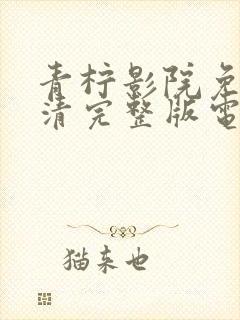 青柠影院免
清完整版電
猫来也